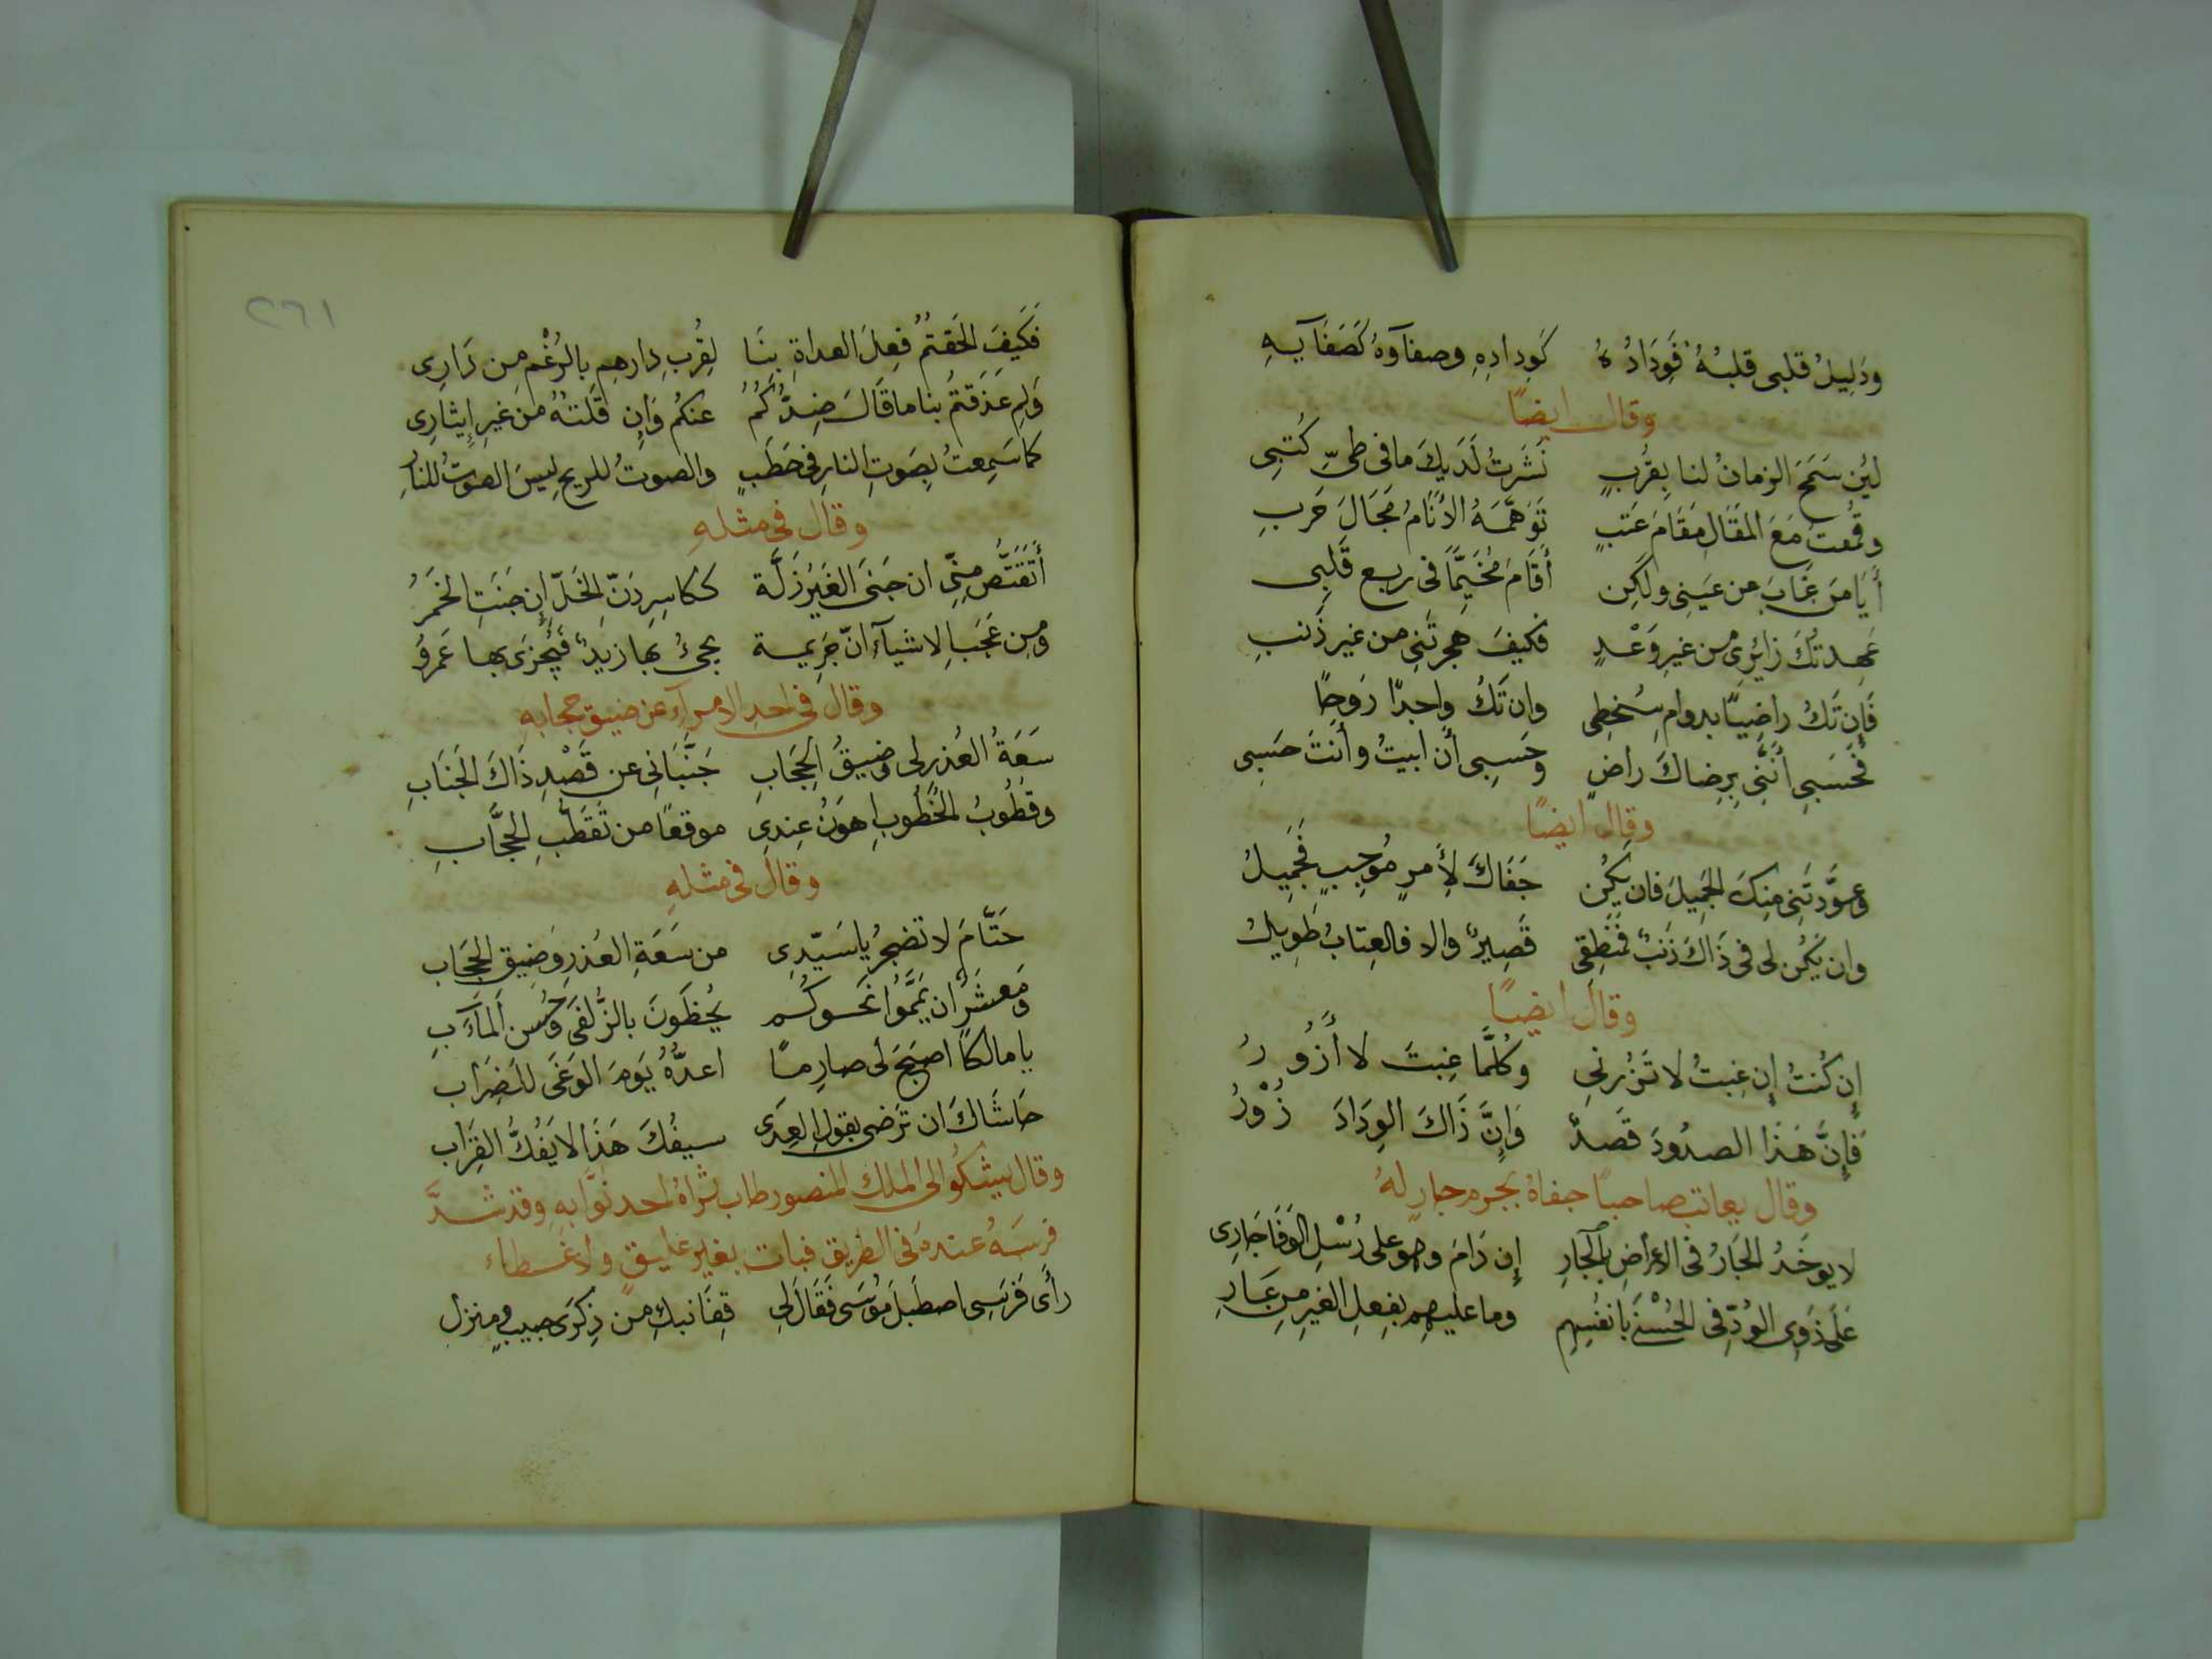 ودَلِيلُ قلبى قلبُهُ فَوِدَادُهُ كَوِدادِهِ وصفآوهُ كَصَفَآيهِ
وقال ايضًا
لئِن سَمَحَ الزمانُ لنا بِقُربٍ نَشَرتُ لَدَيكَ ما فى طىِّ كُتبِى
وقُمتُ مَعَ المَقَالِ مَقَامَ عَتبٍ تَوَهَّمَهُ الأَنَامُ مَجَالَ حَربِ
أَيَا مَن غَابَ عن عَينِى ولكِن أَقَامَ مُخَيِّمًا فى ربع قَلبِى
عَهِدتُكَ زائِرِى من غيرِ وَعْدٍ فكيفَ هجرتَنِى من غير ذَنبِ
فَإِن تَكُ راضِيًا بدوامِ سُخطِى وان تَكُ واجدًا رَوحًا
فَحَسبِى أنَّنِى بِرِضاكَ راضٍ وحَسبِى أن ابيتُ وأنتَ حَسبِى
وقال ايضًا
وعوَّدتَنِى مِنكَ الجَمِيلَ فان يكُن جَفَاكَ لأَمرٍ مُوجِبٍ فَجَمِيلُ
وان يَكُن لى فى ذَاكَ ذَنبٌ فَمَنطِقِى قَصِيرٌ والا فالعِتابُ طَوِيلُ
وقال ايضًا
إن كُنتُ إن غِبتُ لا تَزُرنى وكُلَّمَا غِبتَ لا أَزُورُ
فَإِنَّ هَذَا الصدُودَ قَصدٌ وَإِنَّ ذَاكَ الوِدَادَ زُوْرُ
وقال يعاتب صاحبًا جفاهُ بجرم جارٍ لهُ
لا يوخَذُ الجَارُ فى الاعراضِ بالجَارِ إن دَامَ وهو على رُسْلِ الوَفَا جَارِى
عَلَى ذَوِى الوُدِّ فى الحُسْنَى بانفُسِهِم وما عليهِم بِفِعلِ الغيرِ مِن عَارِ
٢٦١
فَكَيفَ الحَقتُمُ فِعلَ العداةِ بِنَا لِقُربِ دارِهِم بالرُغْمِ مِن دَارِى
وَلِم عَذَقتُم بنا ما قَالَ ضِدُّكُمُ عنكُم وَان قَلتُهُ من غيرِ إِيثارِى
كما سَمِعتُ بِصَوتِ النارِ فى حَطَبٍ والصوتُ للريحِ ليسَ الصوتُ للنارِ
وقال فى مثلهِ
أَتَقتَصُّ مِنِّى ان جَنَى الغَيرُ زَلَّة ككاسِرِ دَنِّ الخَلِّ إن جَنَتِ الخَمرُ
ومِن عَجَبِ الاشيآءِ انّ جَرِيمة يجئُ بها زيدٌ فَيُجزَى بها عَمرُو
وقال فى احد الامرآءِ عن ضيق حجابهِ
سَعَةُ العُذرِ لى وضيقُ الحِجَابِ جَنَّبَانِى عن قَصْدِ ذَاكَ الجَنَابِ
وقطُوبُ الخُطُوبِ اهوَنُ عِندِى موقعًا من تَقَطُّبِ الحُجَّابِ
وقال فى مثلهِ
حَتَّامَ لا تضجرُ يا سَيّدِى من سَعَةِ العُذرِ وَضِيقِ الحِجَابِ
وَمَعشَرٌ ان يَمَّمُوا نَحوكُم يُحظَونَ بالزُّلفَى وَحُسنِ المَآبِ
يا مالكًا اصبَحَ لى صارِمًا اعدُّهُ يَومَ الوَغَى للضِرَاب
حَاشَاكَ ان تَرضَى بقولِ العِدَى سيفُكَ هَذَا لا يَفُكُّ القِرَاب
وقال يشكُو الى الملك المنصور طاب ثراهُ احد نوَّابهِ وقد شدَّ
فرسَهُ عندهُ فى الطريق فبات بغير عليقٍ ولا غطاء
رأَى فَرَسِى اصطَبلَ مُوسَى فَقَالَ لِى قِفَا نبكِ من ذِكرَى حبيبٍ ومنزلِ